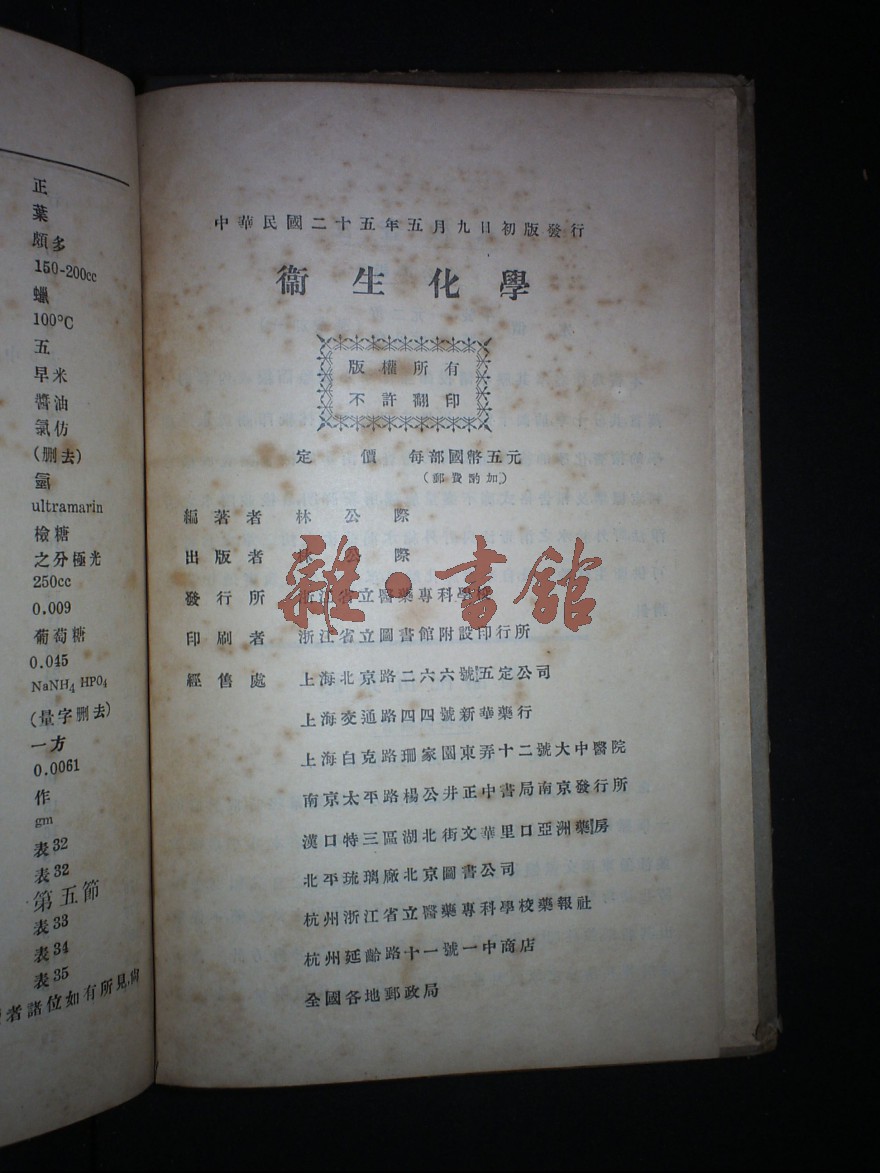 正
葉
頗多
150-200cc
蠟
100°C
五
早米
醬油
氯仿
(删去)
氫
ultramarin
檢糖
之分極光
250cc
0.009
葡萄糖
0.045
NaNH4 HPO4
(量字删去)
一方
0.0061
作
gm
表32
表32
第五節
表33
表34
表35
者諸位如有所見,尙
中華民國二十五年五月九日初版發行
衞生化學
版權所有
不許翻印
定價 每部國幣五元
(郵費酌加)
編著者 林公際
出版者 林公際
發行所 浙江省立醫藥專科學校
印刷者 浙江省立圖書館附設印行所
經售處 上海北京路二六六號五定公司
上海交通路四四號新華藥行
上海白克路珊家園東弄十二號大中醫院
南京太平路楊公井正中書局南京發行所
漢口特三區湖北街文華里口亞洲藥房
北平琉璃廠北京圖書公司
杭州浙江省立醫藥專科學校藥報社
杭州延齡路十一號一中商店
全國各地郵政局
雜·書館